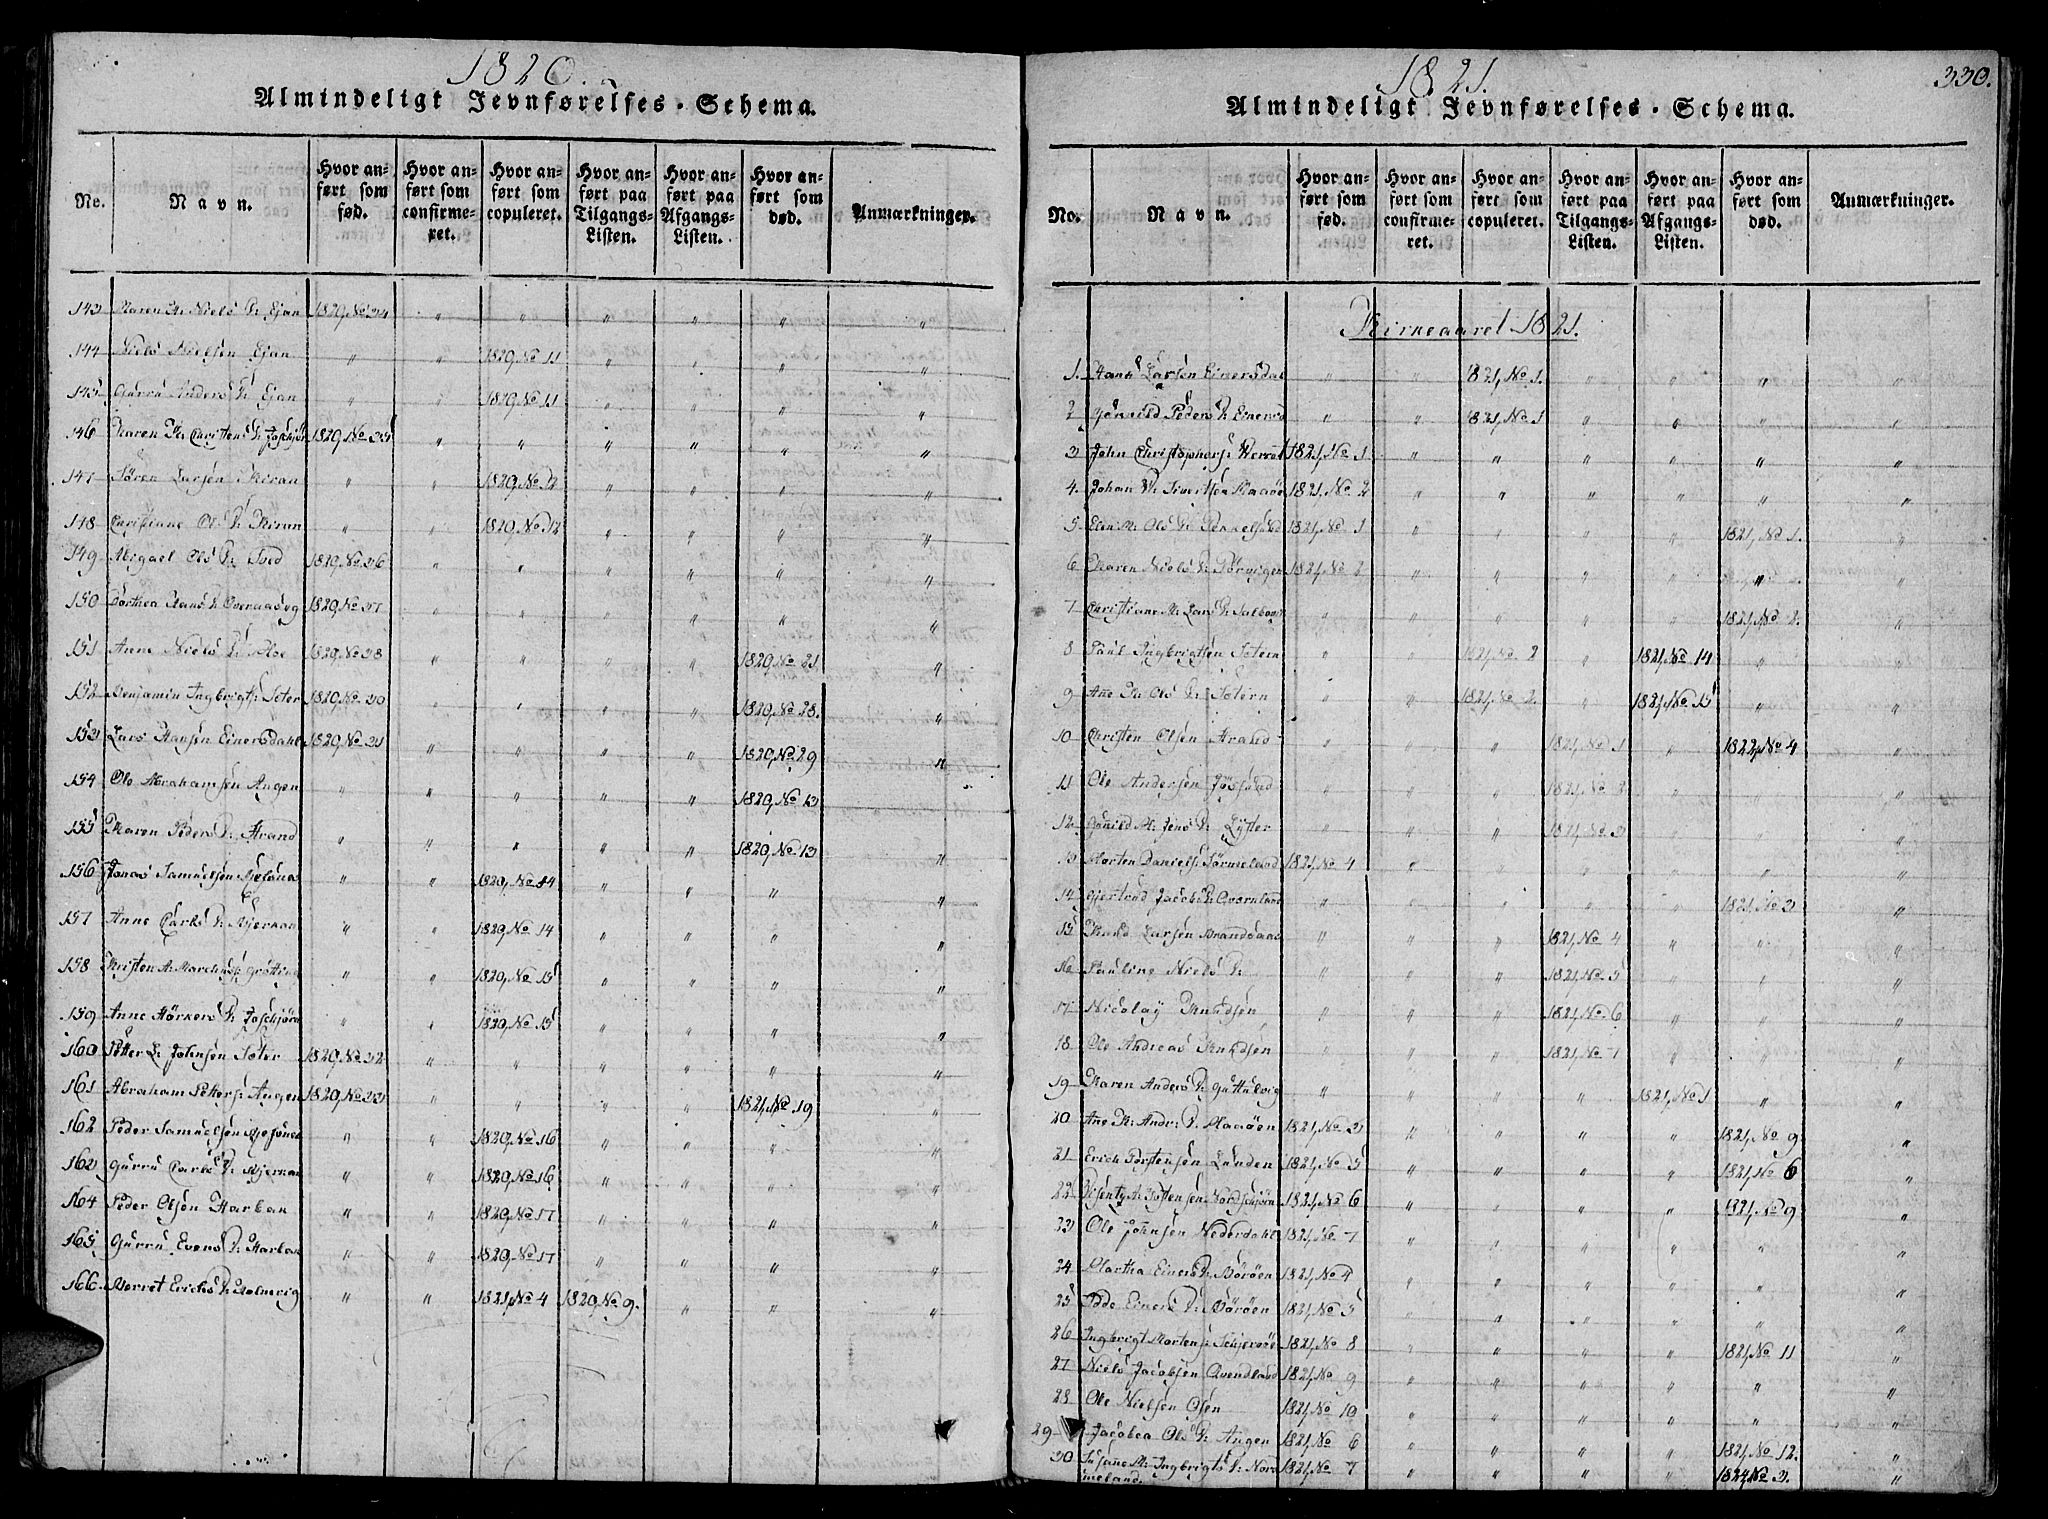 1820.
Almindeligt Jevnførelses-Schema.
No. Navn. Hvor anført som fød. Hvor anført som confirmeret. Hvor anført som copuleret. Hvor anført paa Tilgangs-Listen. Hvor anført paa Afgangs-Listen. Hvor anført som død. Anmærkninger.
143 Karen M: Niels D: Ejan 1820, No 34 " " " " " "
144 Niels Nielsen Ejan " " 1820, No 11 " " " "
145 Gurru Anders D: Ejan " " 1820, No 11 " " " "
146 Karen M: Christens D: 1820, No 35 " " " " " "
147 Sören Larsen Kiran " " 1820, No 12 " " " "
148 Christiane Ols D: Kiran " " 1820, No 12 " " " "
149 Abigael Ols D: 1820, No 36 " " " " " "
150 Dorthea Hans D: 1820, No 37 " " " " " "
151 Anne Niels D: 1820, No 38 " " " " 1820, No 21 "
152 Benjamin Ingbrigts: Seter 1820, No 30 " " " " 1820, No 28. "
153 Lars Hansen Einersdahl 1820, No 31 " " " " 1820, No 29 "
154 Ole Abrahamsen Angen " " " " " 1820, No 13
155 Karen Peders D: Strand " " " " " 1820, No 13 "
156 Jonas Samuelsen " " 1820, No 14 " " " "
157 Anne Carls D: Bjerkan " " 1820, No 14 " " " "
158 Kristen A: " " 1820, No 15 " " " "
159 Anne D: " " 1820, No 15 " " " "
160 Petter L: Johnsen Seter 1820, No 32 " " " " " "
161 Abraham Petters: Angen 1820, No 33 " " " " 1821, No 19 "
162 Peder Samuelsen " " 1820, No 16 " " " "
163 Gurru Carls D: Bjerkan " " 1820, No 16 " " " "
164 Peder Olsen Harbak " " 1820, No 17 " " " "
165 Gurru Evens D: Harbak " " 1820, No 17 " " " "
166 Berret Erichs D: Holmvig " " 1821, No 4 1820, No 9. " " "
1821.
330.
Almindeligt Jevnførelses-Schema.
No. Navn. Hvor anført som fød. Hvor anført som confirmeret. Hvor anført som copuleret. Hvor anført paa Tilgangs-Listen. Hvor anført paa Afgangs-Listen. Hvor anført som død. Anmærkninger.
Kirkeaaret 1821.
1. Hans Larsen Einersdal " " 1821, No 1. " " " "
2 Gunild Peders D: Einersd " " 1821, No 1 " " " "
3 John Christophers: 1821, No 1 " " " " " "
4. Johan P: Sivertsen 1821, No 2 " " " " " "
5 Elen M: Ols D: 1821, No 1 " " " " 1821, No 1. "
6 Karen Niels D: 1821, No 2 " " " " " "
7 Christiane M: Lars D: " " " " " 1821, No 2. "
8 Paul Ingbrigtsen Setern " " 1821, No 2 " 1821, No 14 " "
9 Ane K: Ols D: Setern " " 1821, No 2. " 1821, No 15 " "
10 Christen Olsen Strand " " " 1821, No 1 " 1822, No 4 "
11 Ole Andersen Jössund " " " 1821, No 2 " " "
12 Gunild M: Jens D: Lyster " " " 1821, No 3 " " "
13 Morten Daniels: Sörmeland 1821, No 4 " " " " " "
14 Gjertrud Jacobs D: Qvernland " " " " " 1821, No 3 "
15 Knud Larsen " " " 1821, No 4 " " "
16 Pauline Niels D: " " " 1821, No 5 " " "
17 Nicolay Knudsen " " " 1821, No 6 " " "
18 Ole Andreas Knudsen " " " 1821, No 7 " " "
19 Karen Anders D: Guttulvig " " " " 1821, No 1 " "
20 Ane K: Andr: D: 1821, No 3 " " " " 1821, No 9 "
21 Erich Torstensen Lunden 1821, No 5 " " " " 1821, No 6 "
22 1821, No 6 " " " " 1821, No 9 "
23 Ole Johnsen Nederdahl 1821, No 7 " " " " " "
24 Martha Einers D: Böröen 1821, No 4 " " " " " "
25 Einers D: Böröen 1821, No 5 " " " " " "
26 Ingbrigt Mortens: 1821, No 8 " " " " 1821, No 11 "
27 Niels Jacobsen Qvernland 1821, No 9 " " " " " "
28 Ole Nielsen Osen 1821, No 10 " " " " " "
29 Jacobea Ols D: Angen 1821, No 6 " " " " 1821, No 12. "
30 Susane M: Ingbrigts D: Nord 1821, No 7 " " " " 1824, No 3. "
meland.